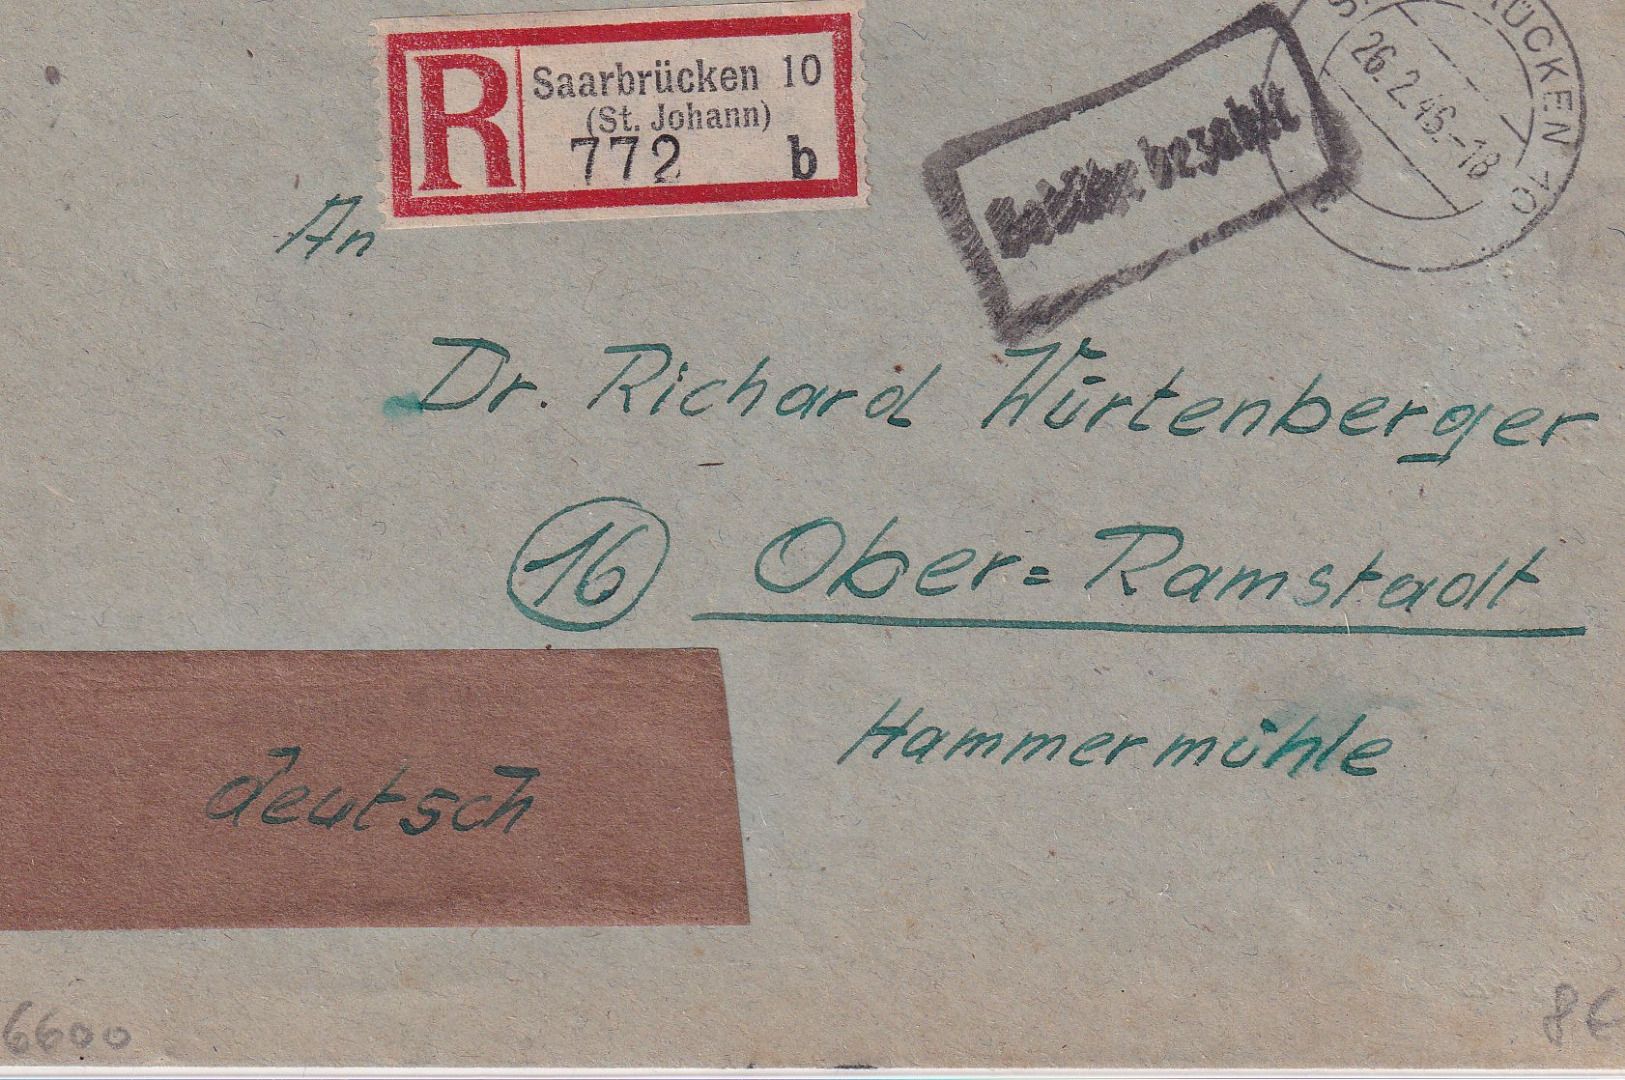 R Saarbrücken 10
(St. Johann)
772 b
Gebühr bezahlt
SAARBRÜCKEN 10
26.2.46.-18
An
Dr. Richard Würtenberger
16 Ober=Ramstadt
Hammermühle
deutsch
6600
8€